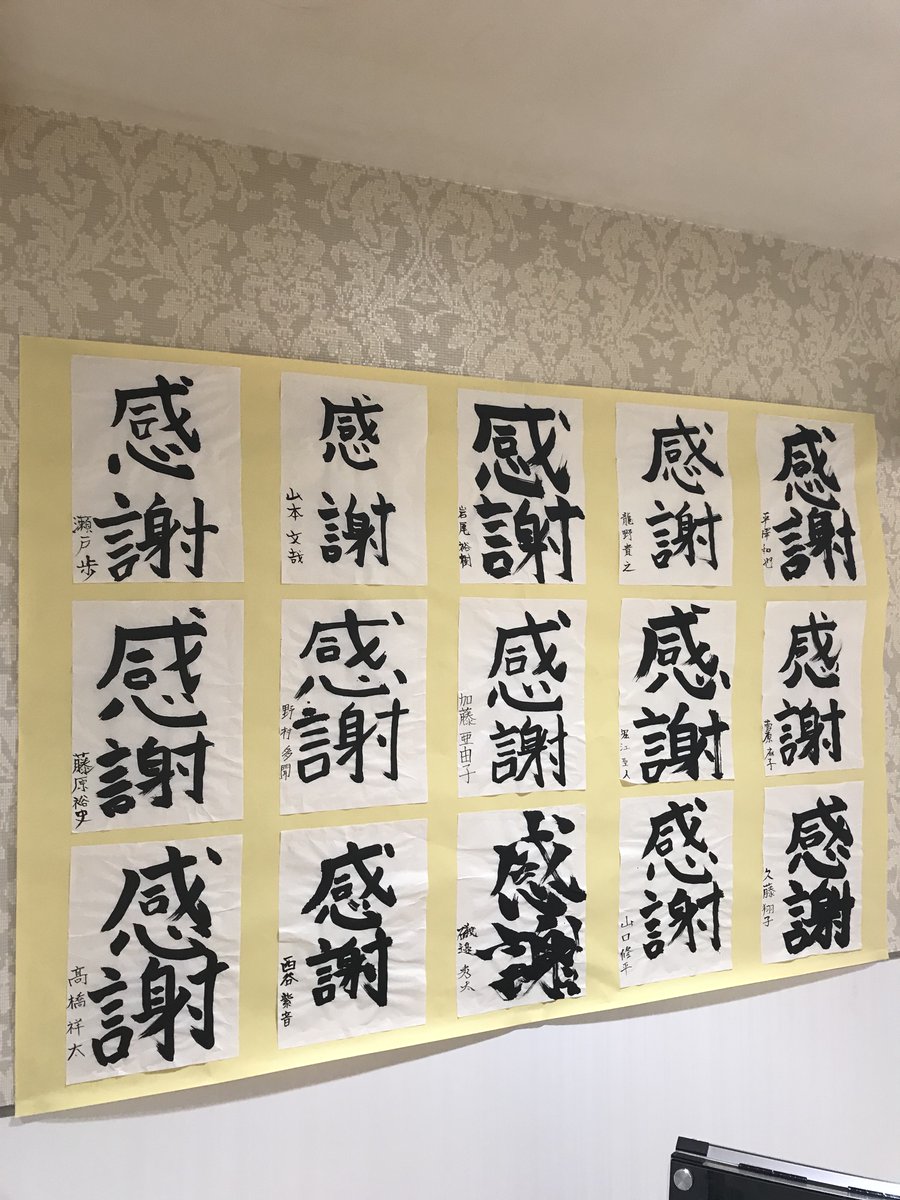 感謝
瀬戸歩
感謝
山本文哉
感謝
岩尾裕樹
感謝
龍野貴之
感謝
平澤和也
感謝
藤原裕史
感謝
野村多聞
感謝
加藤亜由子
感謝
感謝
感謝
高橋祥太
感謝
西谷紫音
感謝
感謝
山口修平
感謝
久藤翔子